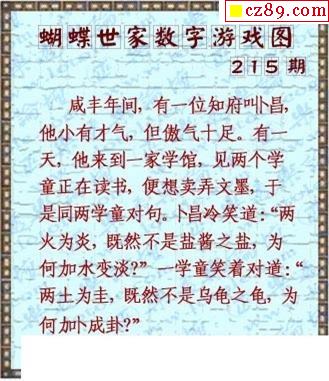 cz89.com
蝴蝶世家数字游戏图
215期
咸丰年间，有一位知府叫卜昌，
他小有才气，但傲气十足。有一
天，他来到一家学馆，见两个学
童正在读书，便想卖弄文墨，于
是同两学童对句。卜昌冷笑道：“两
火为炎，既然不是盐酱之盐，为
何加水变淡？”一学童笑着对道：“
两土为圭，既然不是乌龟之龟，为
何加卜成卦？”